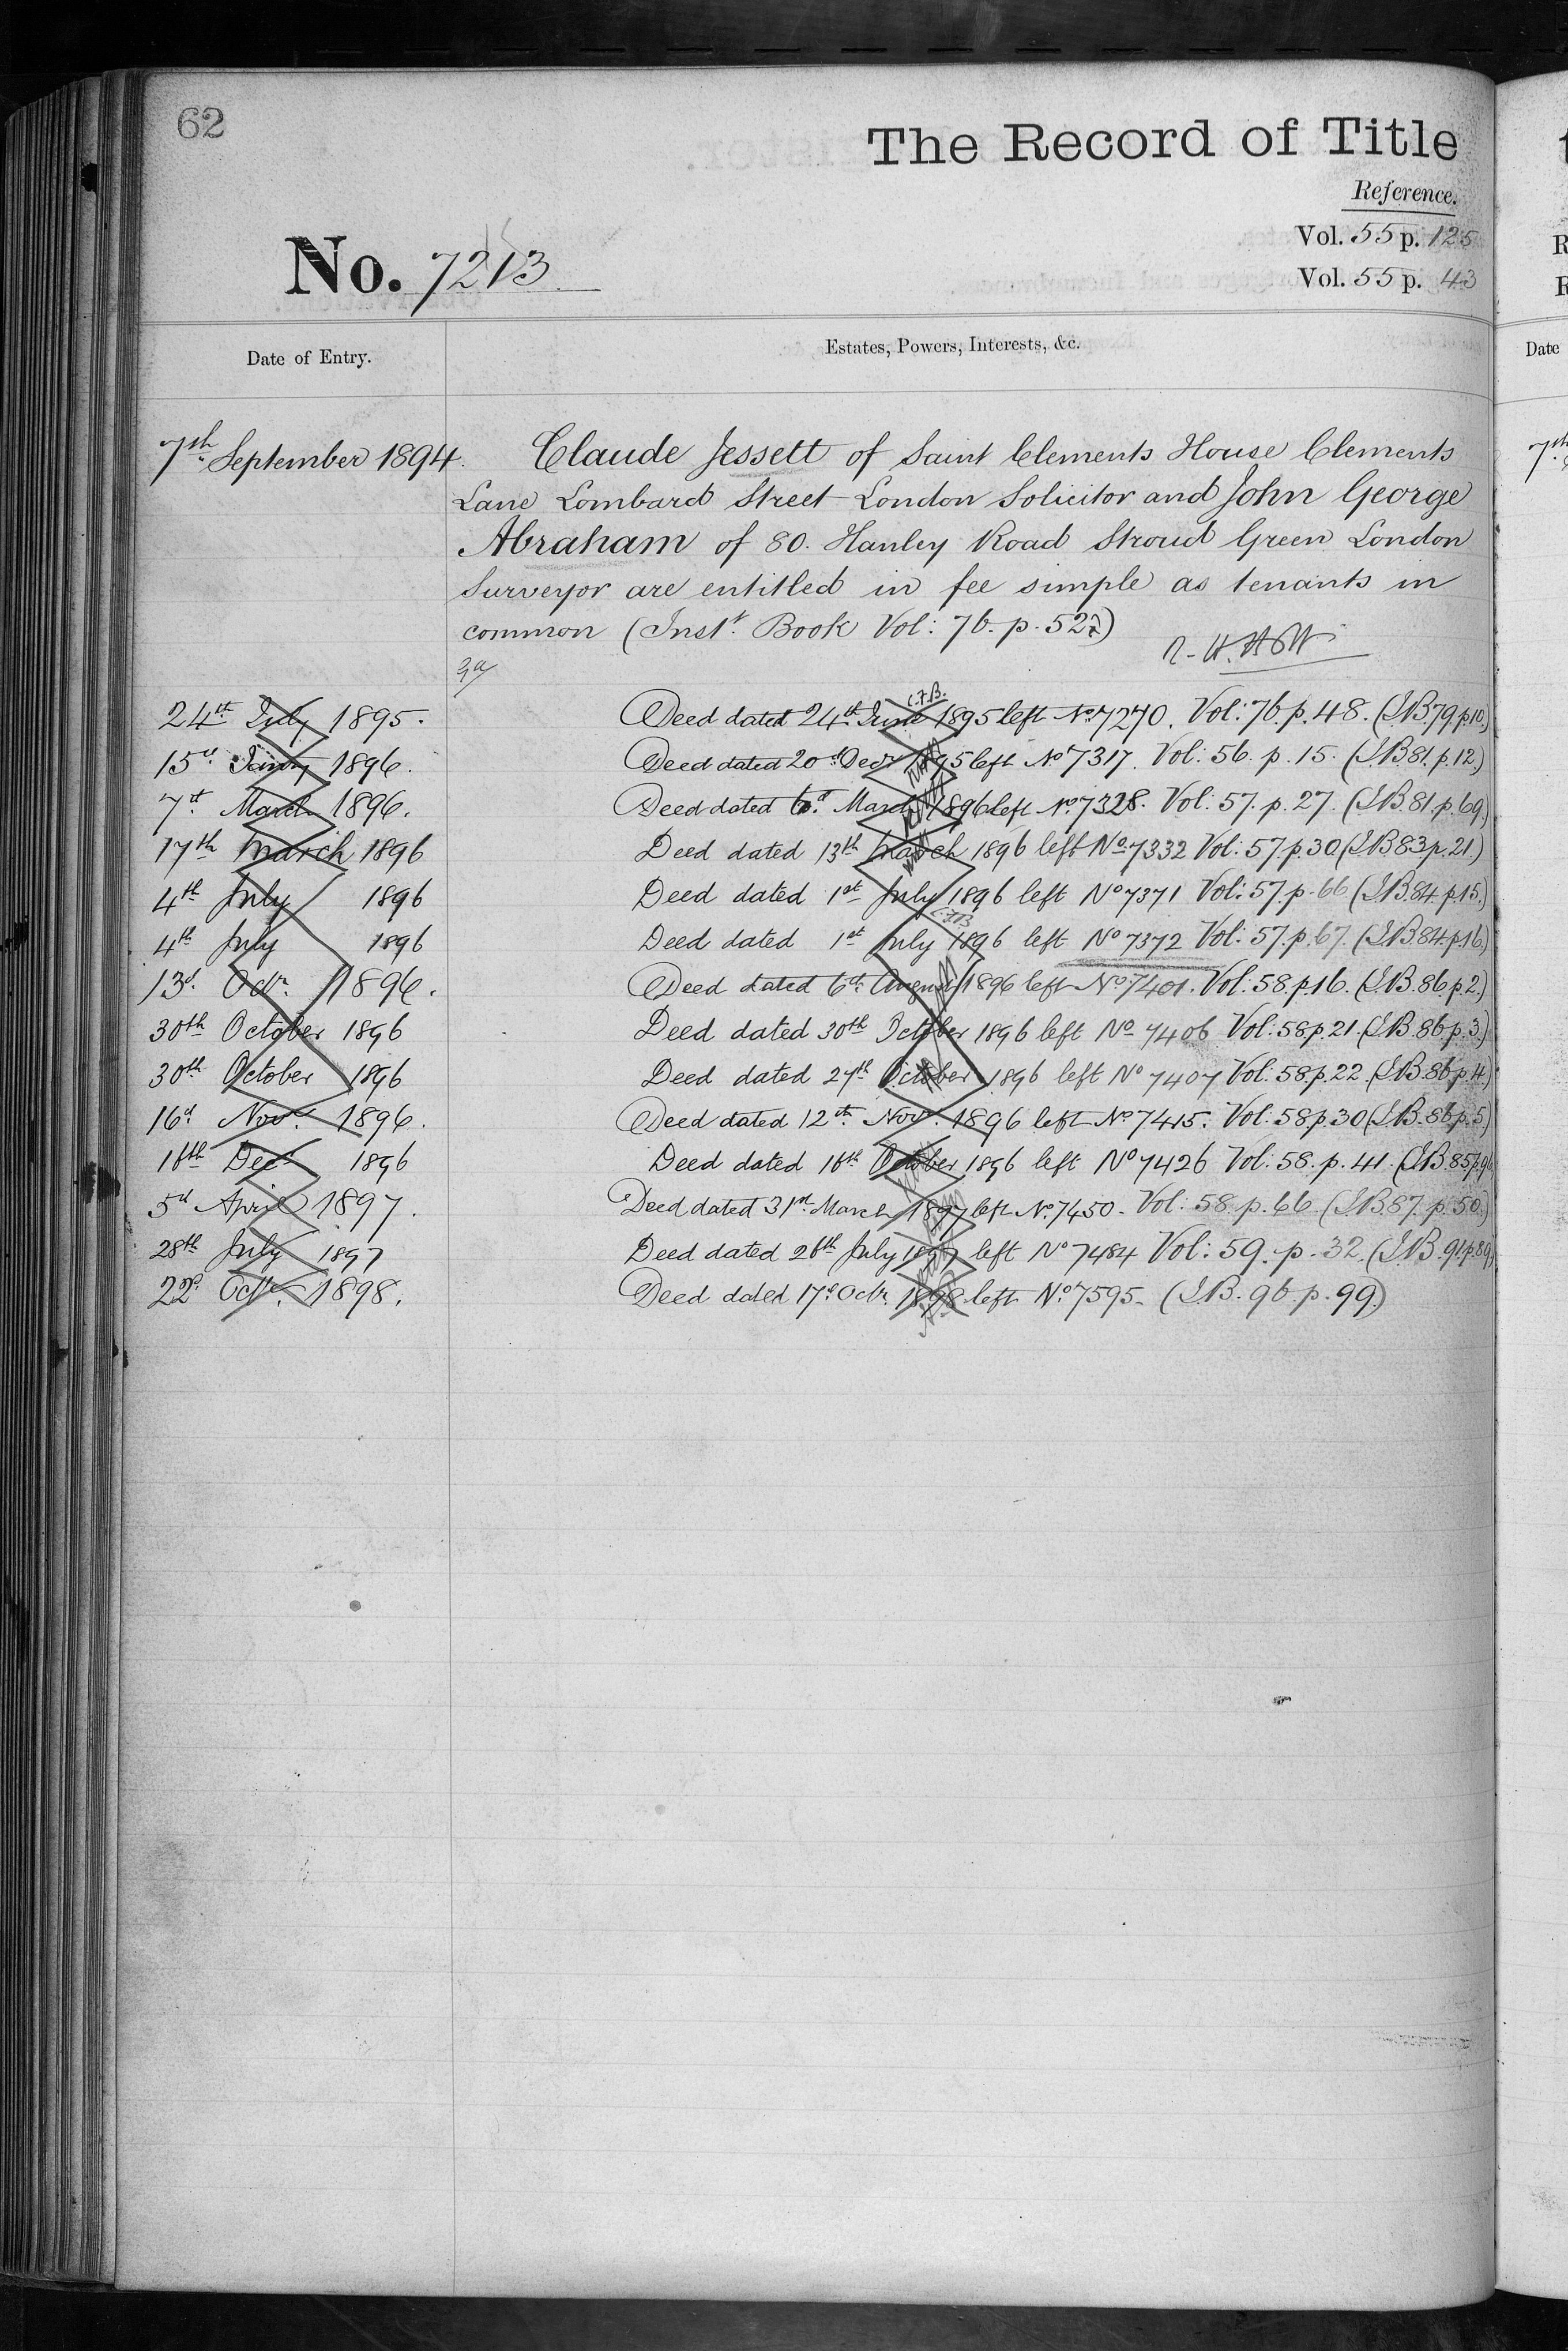 62
The Record of Title
Reference.
No. 7213
Vol. 55 p. 125
Vol. 55 p. 43
Date of Entry.
Estates, Powers, Interests, &c.
7th September 1894. Claude Jessett of Saint Clements House Clements
Lane Lombard Street London Solicitor and John George
Abraham of 80. Hanley Road Stroud Green London
Surveyor are entitled in fee simple as tenants in
common (Inst. Book Vol: 76. p. 527)
C.F.B.
24th July 1895. Deed dated 24th June 1895 left No. 7270. Vol: 76. p. 48. (I.B. 79. p. 10.)
15th Jany 1896. Deed dated 20th Decr 1895 left No 7317. Vol: 56. p. 15. (I.B. 81. p. 12.)
7th March 1896. Deed dated 6th March 1896 left No. 7328. Vol: 57. p. 27. (I.B. 81. p. 69.)
17th March 1896 Deed dated 13th March 1896 left No 7332 Vol: 57. p. 30 (I.B. 83 p. 21.)
4th July 1896 Deed dated 1st July 1896 left No 7371 Vol: 57. p. 66 (I.B. 84. p. 15.)
C.F.B.
4th July 1896 Deed dated 1st July 1896 left No 7372 Vol: 57. p. 67. (I.B. 84. p. 16.)
13th Octr. 1896. Deed dated 6th August 1896 left No. 7401. Vol: 58. p. 16. (I.B. 86. p. 2.)
30th October 1896 Deed dated 30th October 1896 left No 7406 Vol: 58. p. 21. (I.B. 86. p. 3.)
30th October 1896 Deed dated 27th October 1896 left No 7407 Vol: 58. p. 22. (I.B. 86. p. 4.)
16th Novr. 1896. Deed dated 12th Novr. 1896 left No. 7415. Vol: 58. p. 30 (I.B. 86. p. 5.)
Decr 1896 Deed dated October 1896 left No 7426 Vol: 58. p. 41. (I.B. 85
5th April 1897. Deed dated 31st March 1897 left No. 7450. Vol: 58. p. 66. (I.B. 87. p. 50.)
28th July 1897 Deed dated 26th July 1897 left No 7484 Vol: 59. p. 32. (I.B. 91. p. 89.)
22d Octr. 1898. Deed dated 17th Octr. 1898 left No. 7595. (I.B. 96. p. 99.)
Date
7th